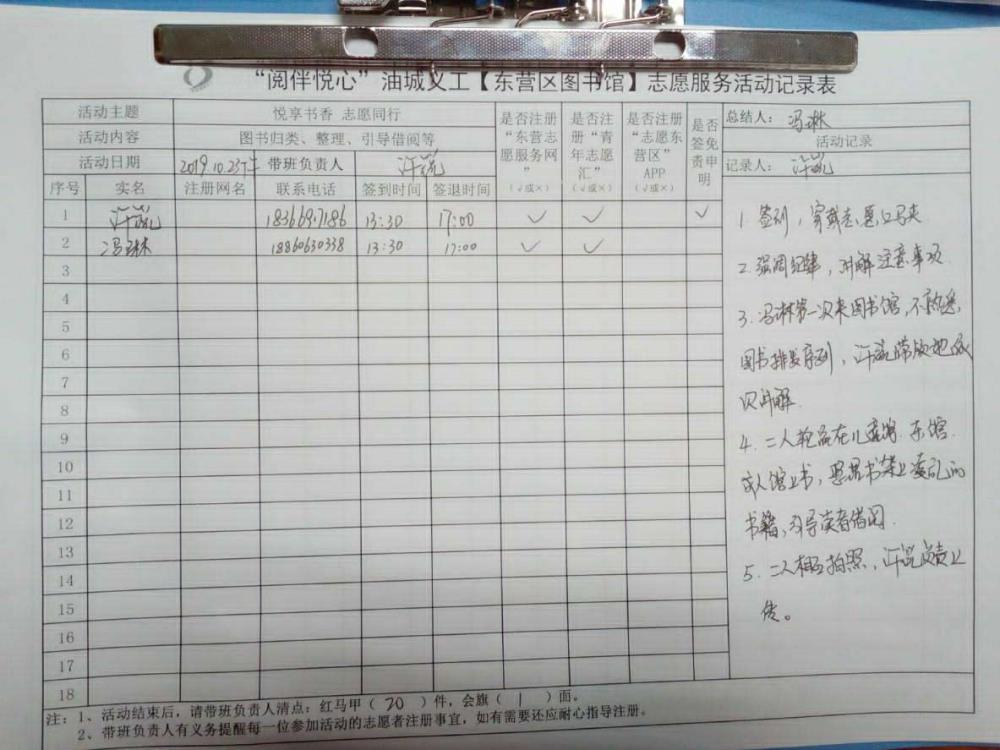 “阅伴悦心”油城义工【东营区图书馆】志愿服务活动记录表
活动主题 悦享书香 志愿同行
活动内容 图书归类、整理、引导借阅等
活动日期 2019.10.23下午 带班负责人
序号 实名 注册网名 联系电话 签到时间 签退时间
是否注册“东营志愿服务网”（√或×）
是否注册“青年志愿汇”（√或×）
是否注册“志愿东营区”APP（√或×）
是否签免责申明
总结人：冯琳
活动记录
记录人：
1 13:30 17:00 ✓ ✓ ✓
2 冯琳 18860630338 13:30 17:00 ✓ ✓
3
4
5
6
7
8
9
10
11
12
13
14
15
16
17
18
1. 签到，穿戴志愿红马夹
2. 强调纪律，讲解注意事项
3. 冯琳第一次来图书馆，不熟悉
图书排架序列，
讲解
4. 二人轮流在儿童馆.东馆.
成人馆上书，整理书架上凌乱的
书籍，引导读者借阅.
5. 二人相互拍照，负责上
传。
注：1、活动结束后，请带班负责人清点：红马甲（ 20 ）件，会旗（ 1 ）面。
2、带班负责人有义务提醒每一位参加活动的志愿者注册事宜，如有需要还应耐心指导注册。